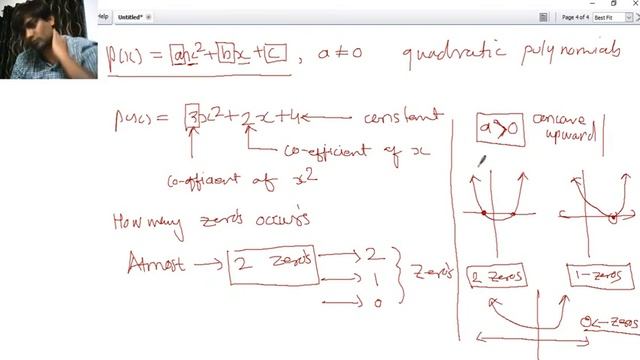 Help
Untitled*
Page 4 of 4
Best Fit
p(x) = ax² + bx + c , a ≠ 0 quadratic polynomials
p(x) = 3x² + 2x + 4 ← constant
co-efficient of x
co-efficient of x²
How many zeros occurs
Atmost → 2 zeros → 2
→ 1
→ 0
zeros
a>0 concave upward
2 zeros
1-zeros
0 ← zeros